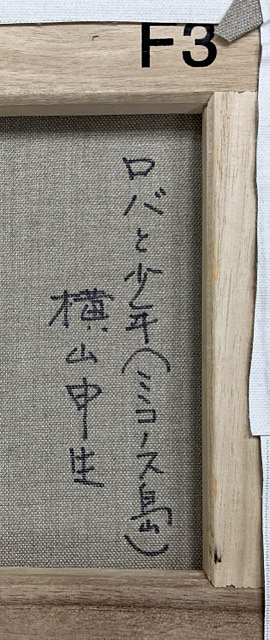 F3
ロバと少年(ミコース島)
横山申生